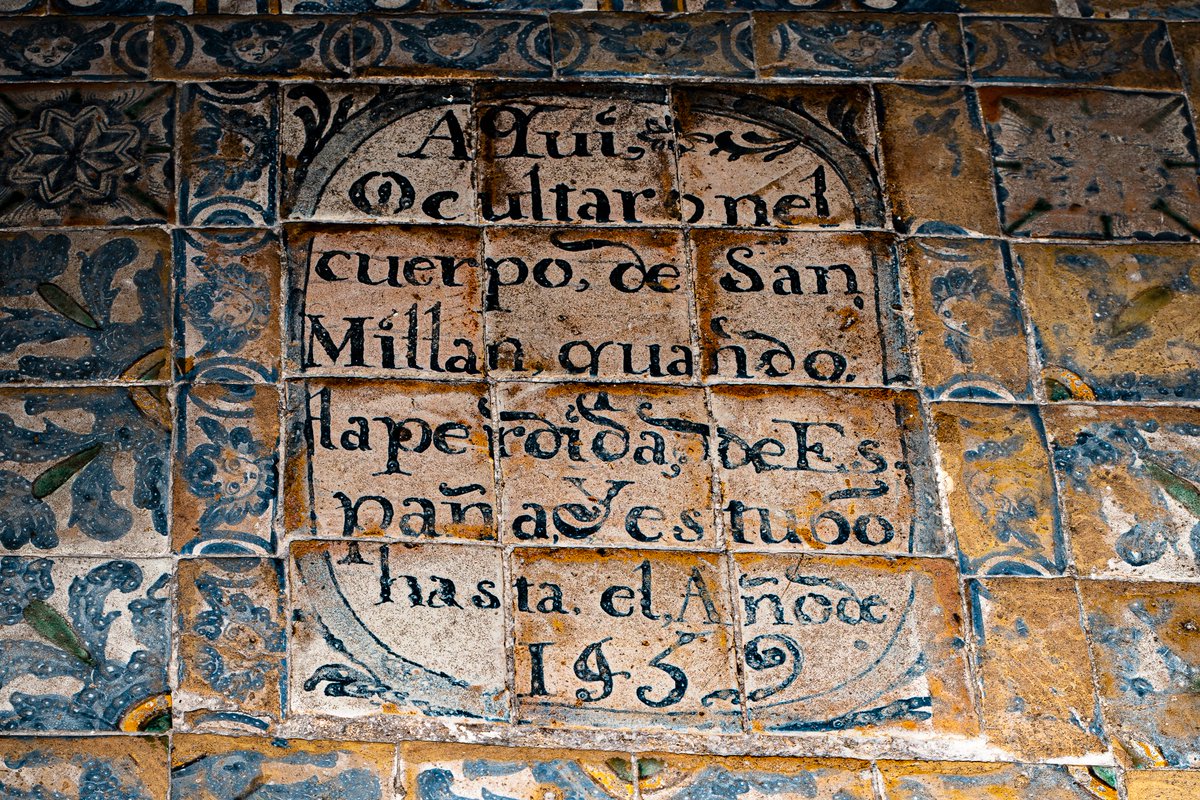 Aqui,
Ocultaronel
cuerpo, de San
Millan, quando.
la perdida, de Es
paña, Y estubo
hasta. el, Año de
1459